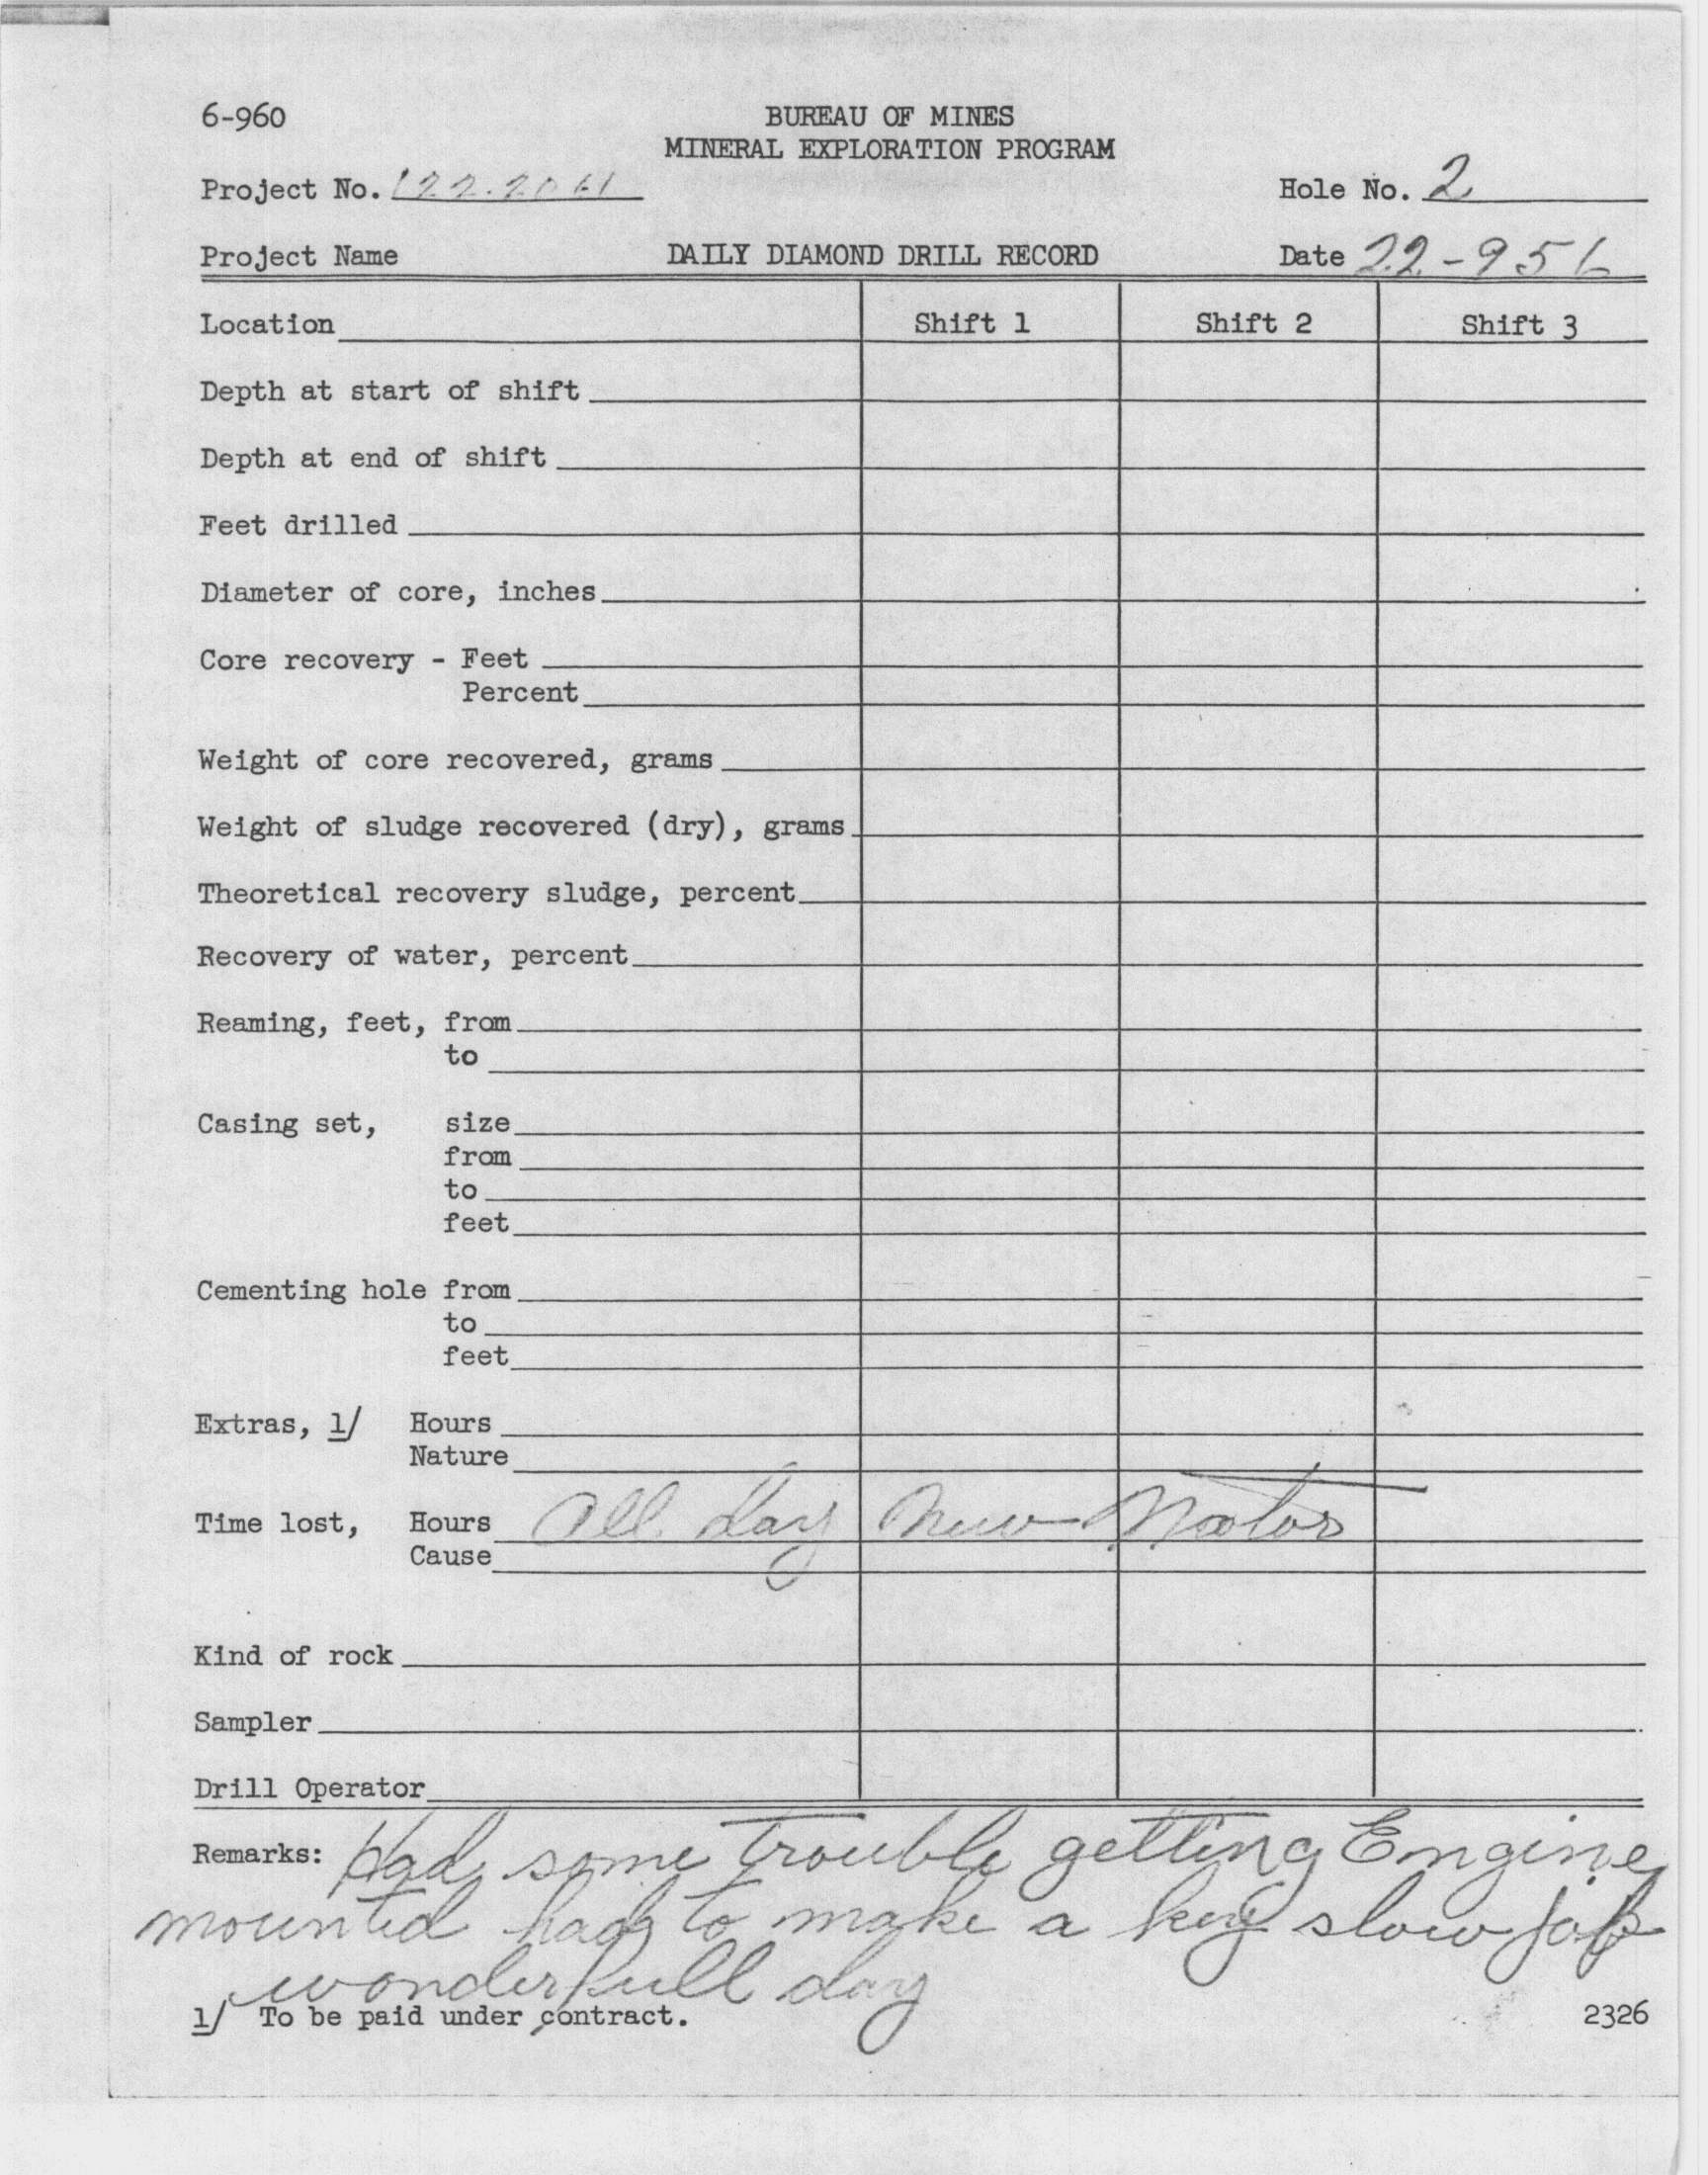 6-960
BUREAU OF MINES
MINERAL EXPLORATION PROGRAM
Project No. 122.2061
Hole No. 2
Project Name
DAILY DIAMOND DRILL RECORD
Date 22-956
Location Shift 1 Shift 2 Shift 3
Depth at start of shift
Depth at end of shift
Feet drilled
Diameter of core, inches
Core recovery - Feet
Percent
Weight of core recovered, grams
Weight of sludge recovered (dry), grams
Theoretical recovery sludge, percent
Recovery of water, percent
Reaming, feet, from
to
Casing set, size
from
to
feet
Cementing hole from
to
feet
Extras, 1/ Hours
Nature
Time lost, Hours All day New Motor
Cause
Kind of rock
Sampler
Drill Operator
Remarks: Had some trouble getting Engine
mounted had to make a key slow job
wonderfull day
1/ To be paid under contract.
2326